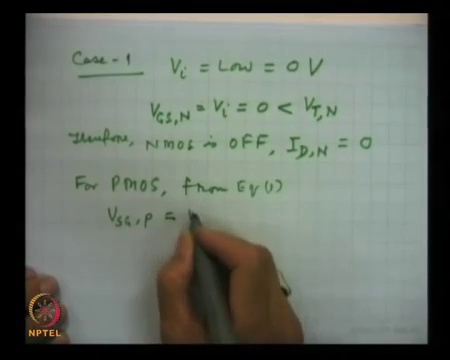 Case-1 Vi = Low = 0 V
VGS,N = Vi = 0 < VT,N
Therefore, NMOS is OFF, ID,N = 0
For PMOS, from Eq(1)
VSG,P =
NPTEL